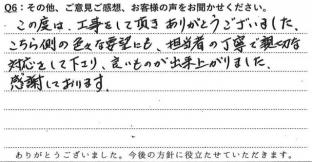 Q6：その他、ご意見ご感想、お客様の声をお聞かせください。
この度は、工事をして頂きありがとうございました。
こちら側の色々な要望にも、担当者の丁寧で親切な
対応をして下さり、良いものが出来上がりました。
感謝しております。
ありがとうございました。今後の方針に役立たせていただきます。